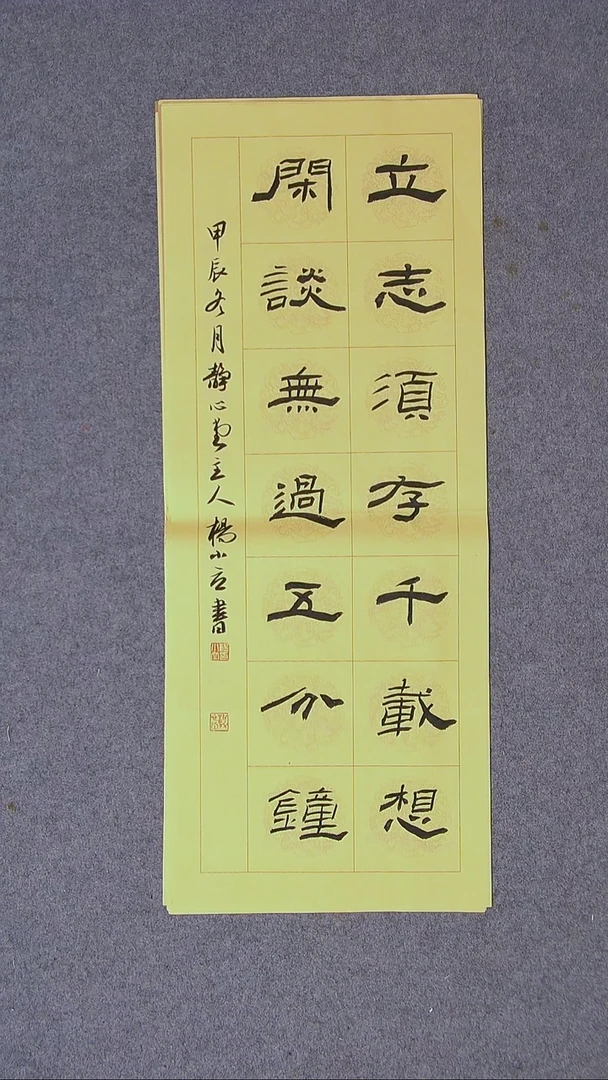 立志須存千載想
閑談無過五分鐘
甲辰冬月靜心堂主人楊小立書